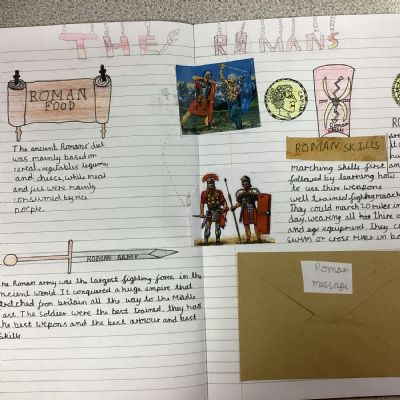 THE ROMANS
ROMAN
FOOD
The ancient Romans' diet
was mainly based on
cereal, vegetables legumes
and cheese, while meat
and fish were mainly
consumed by rich
people.
ROMAN ARMY
The Roman army was the largest fighting force in the
ancient world. It conquered a huge empire that
stretched from britain all the way to the Middle
East. The soldier were the best trained, they had
the best wepons and the best armour and best
skills.
ROMAN SKILLS
marching skills first and
followed by learning how
to use thier weapons
well trained fighting
They could march 20 miles in
day, wearing all his there
and equipment, they
swim or cross rivers in
Roman
message